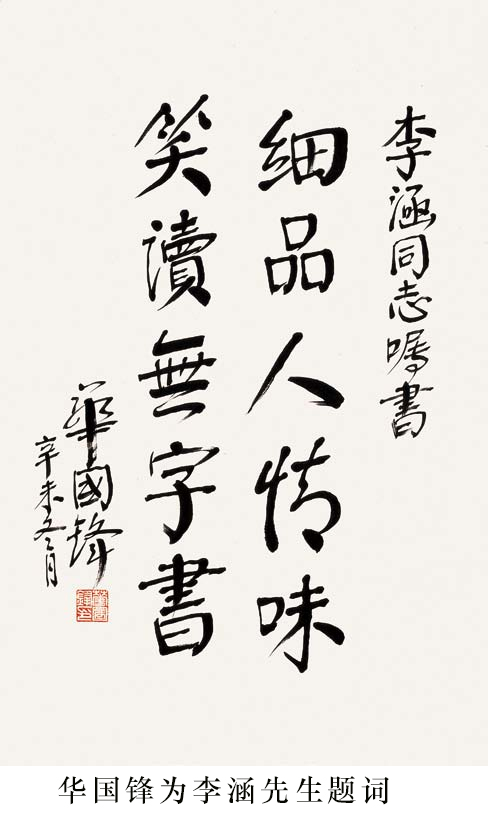 李涵同志嘱書
细品人情味
笑讀無字書
華國鋒
辛未冬月
华国锋为李涵先生题词